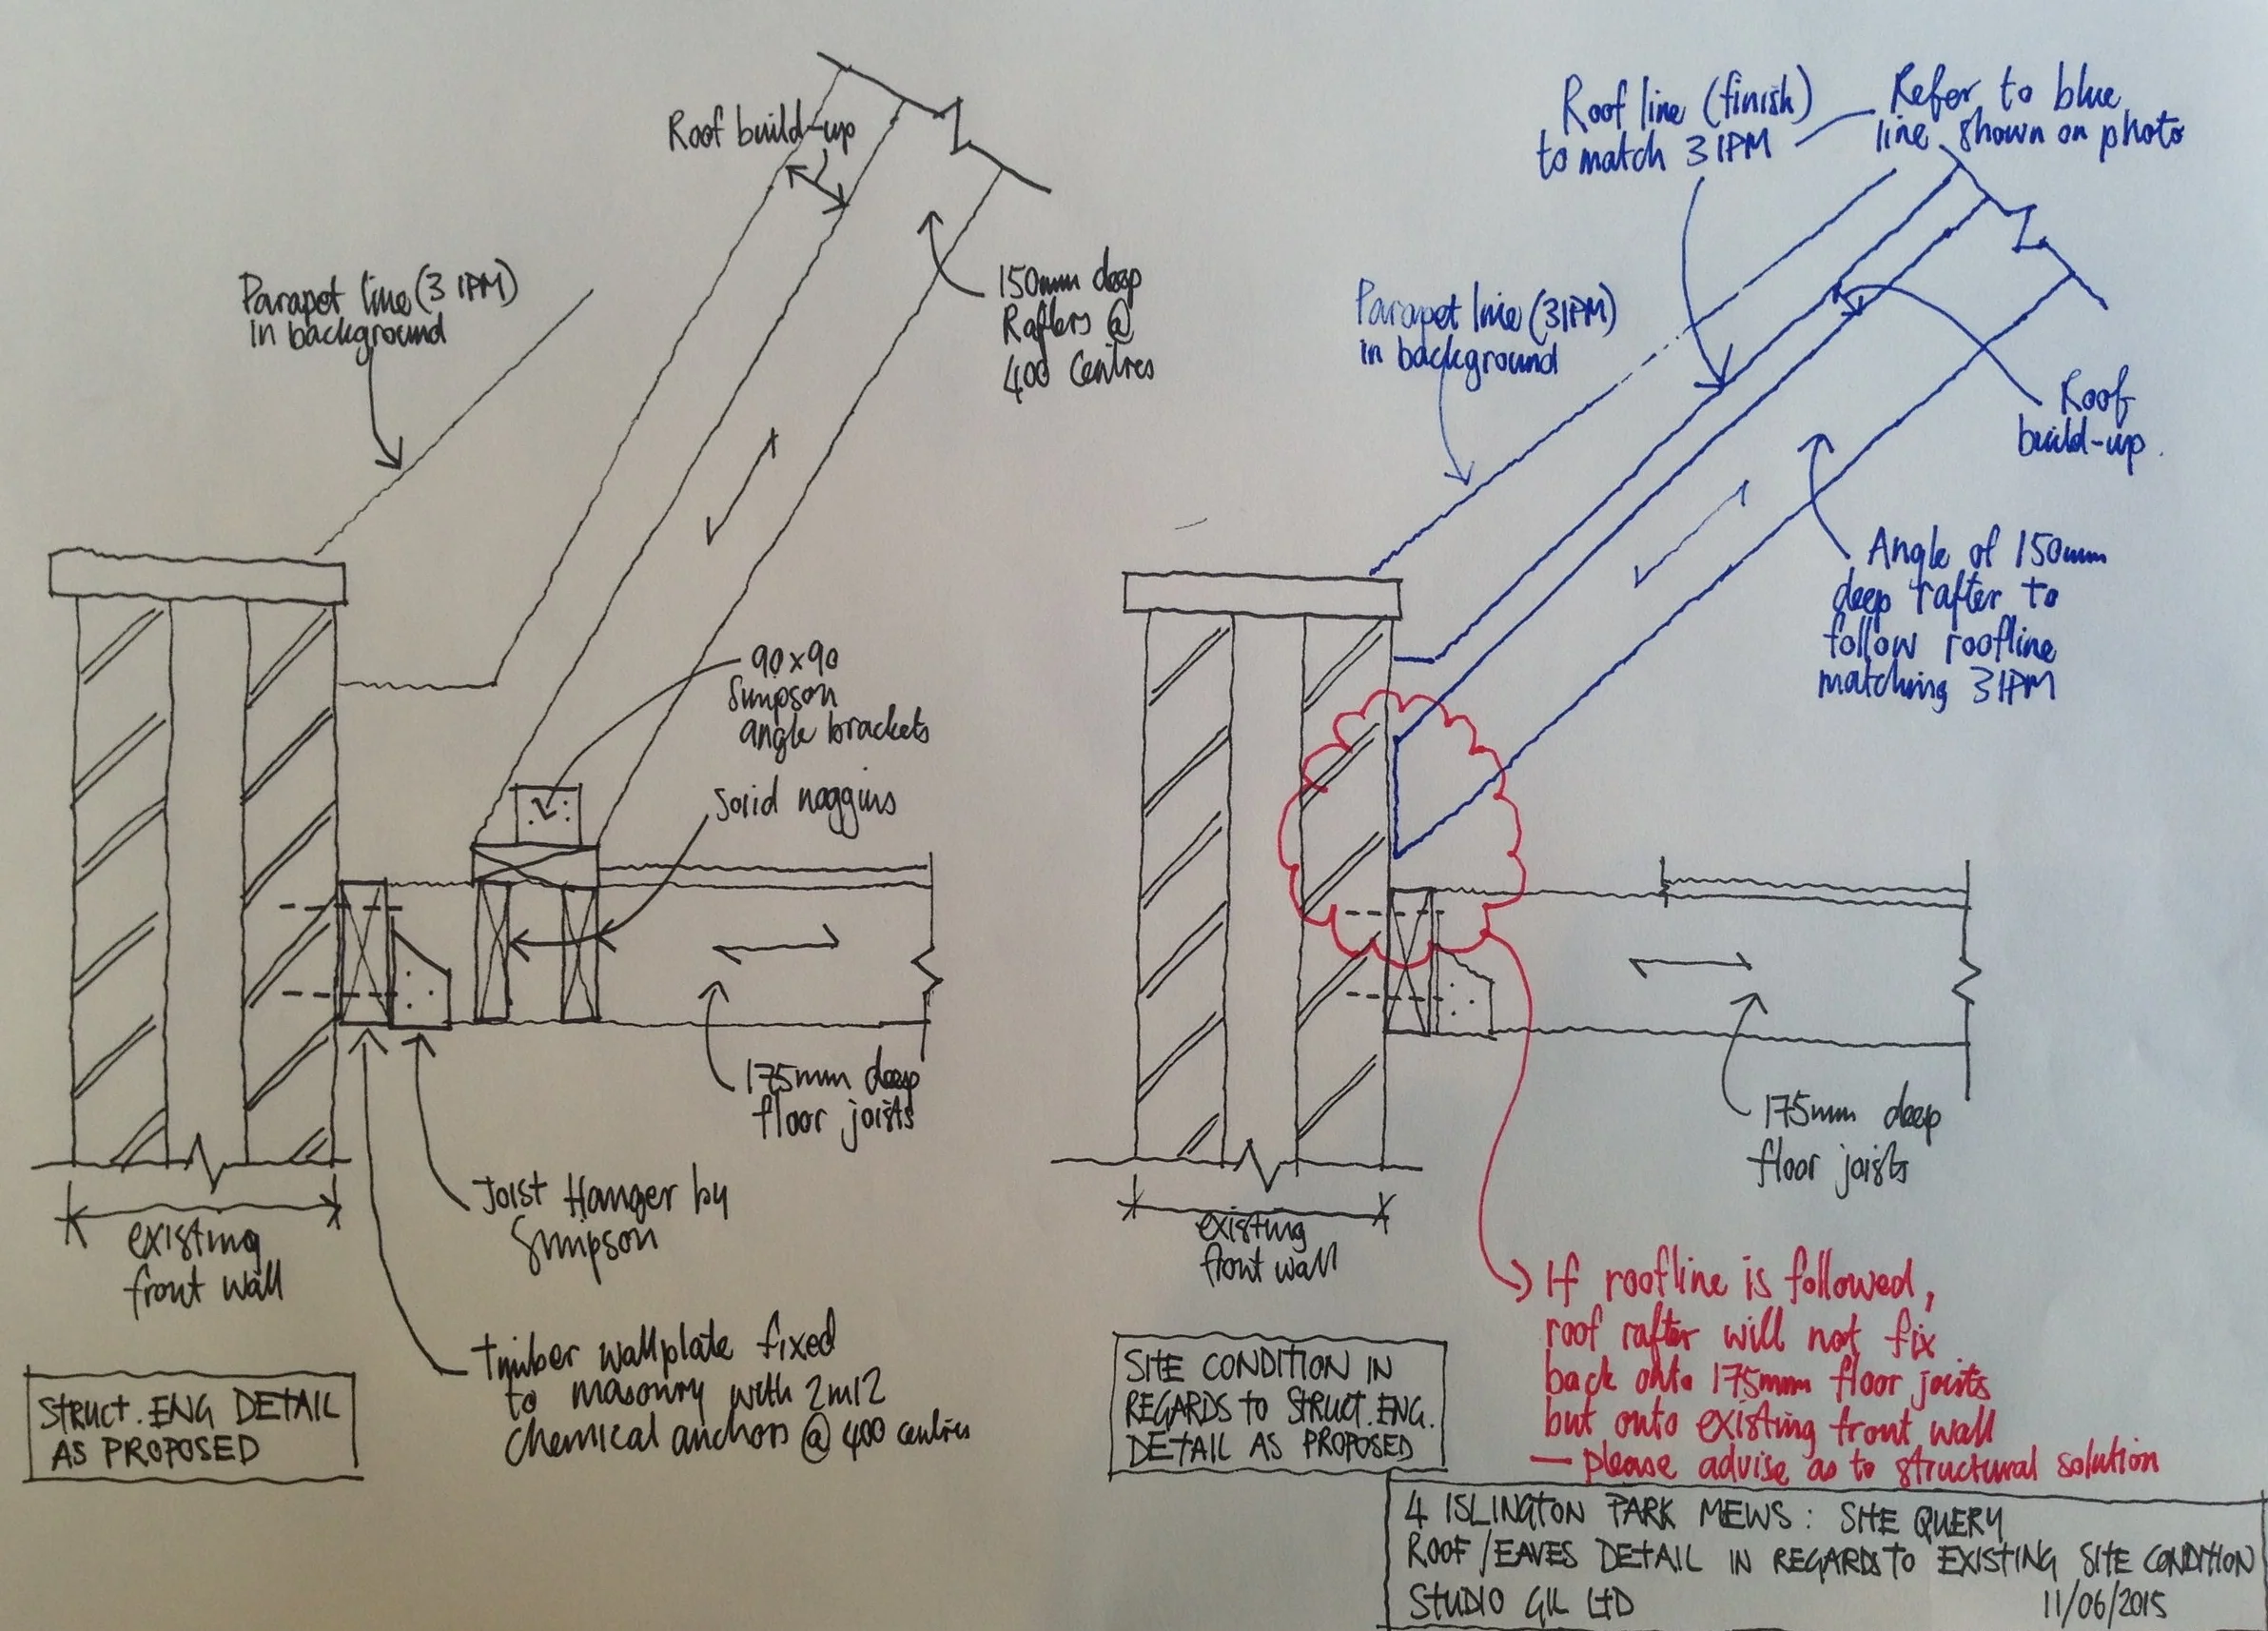 Roof build-up
Parapet line (3 IPM)
in background
150mm deep
Rafters @
400 Centres
90x90
Simpson
angle brackets
Solid noggins
175mm deep
floor joists
Joist Hanger by
Simpson
existing
front wall
Timber wallplate fixed
to masonry with 2m12
chemical anchors @ 400 centres
STRUCT. ENG DETAIL
AS PROPOSED
Roof line (finish)
to match 3 IPM
Refer to blue
line shown on photo
Parapet line (3 IPM)
in background
Roof
build-up.
Angle of 150mm
deep rafter to
follow roofline
matching 3 IPM
175mm deep
floor joists
existing
front wall
SITE CONDITION IN
REGARDS TO STRUCT. ENG.
DETAIL AS PROPOSED
If roofline is followed,
roof rafter will not fix
back onto 175mm floor joists
but onto existing front wall
— please advise as to structural solution
4 ISLINGTON PARK MEWS: SITE QUERY
ROOF/EAVES DETAIL IN REGARDS TO EXISTING SITE CONDITION
STUDIO GIL LTD
11/06/2015